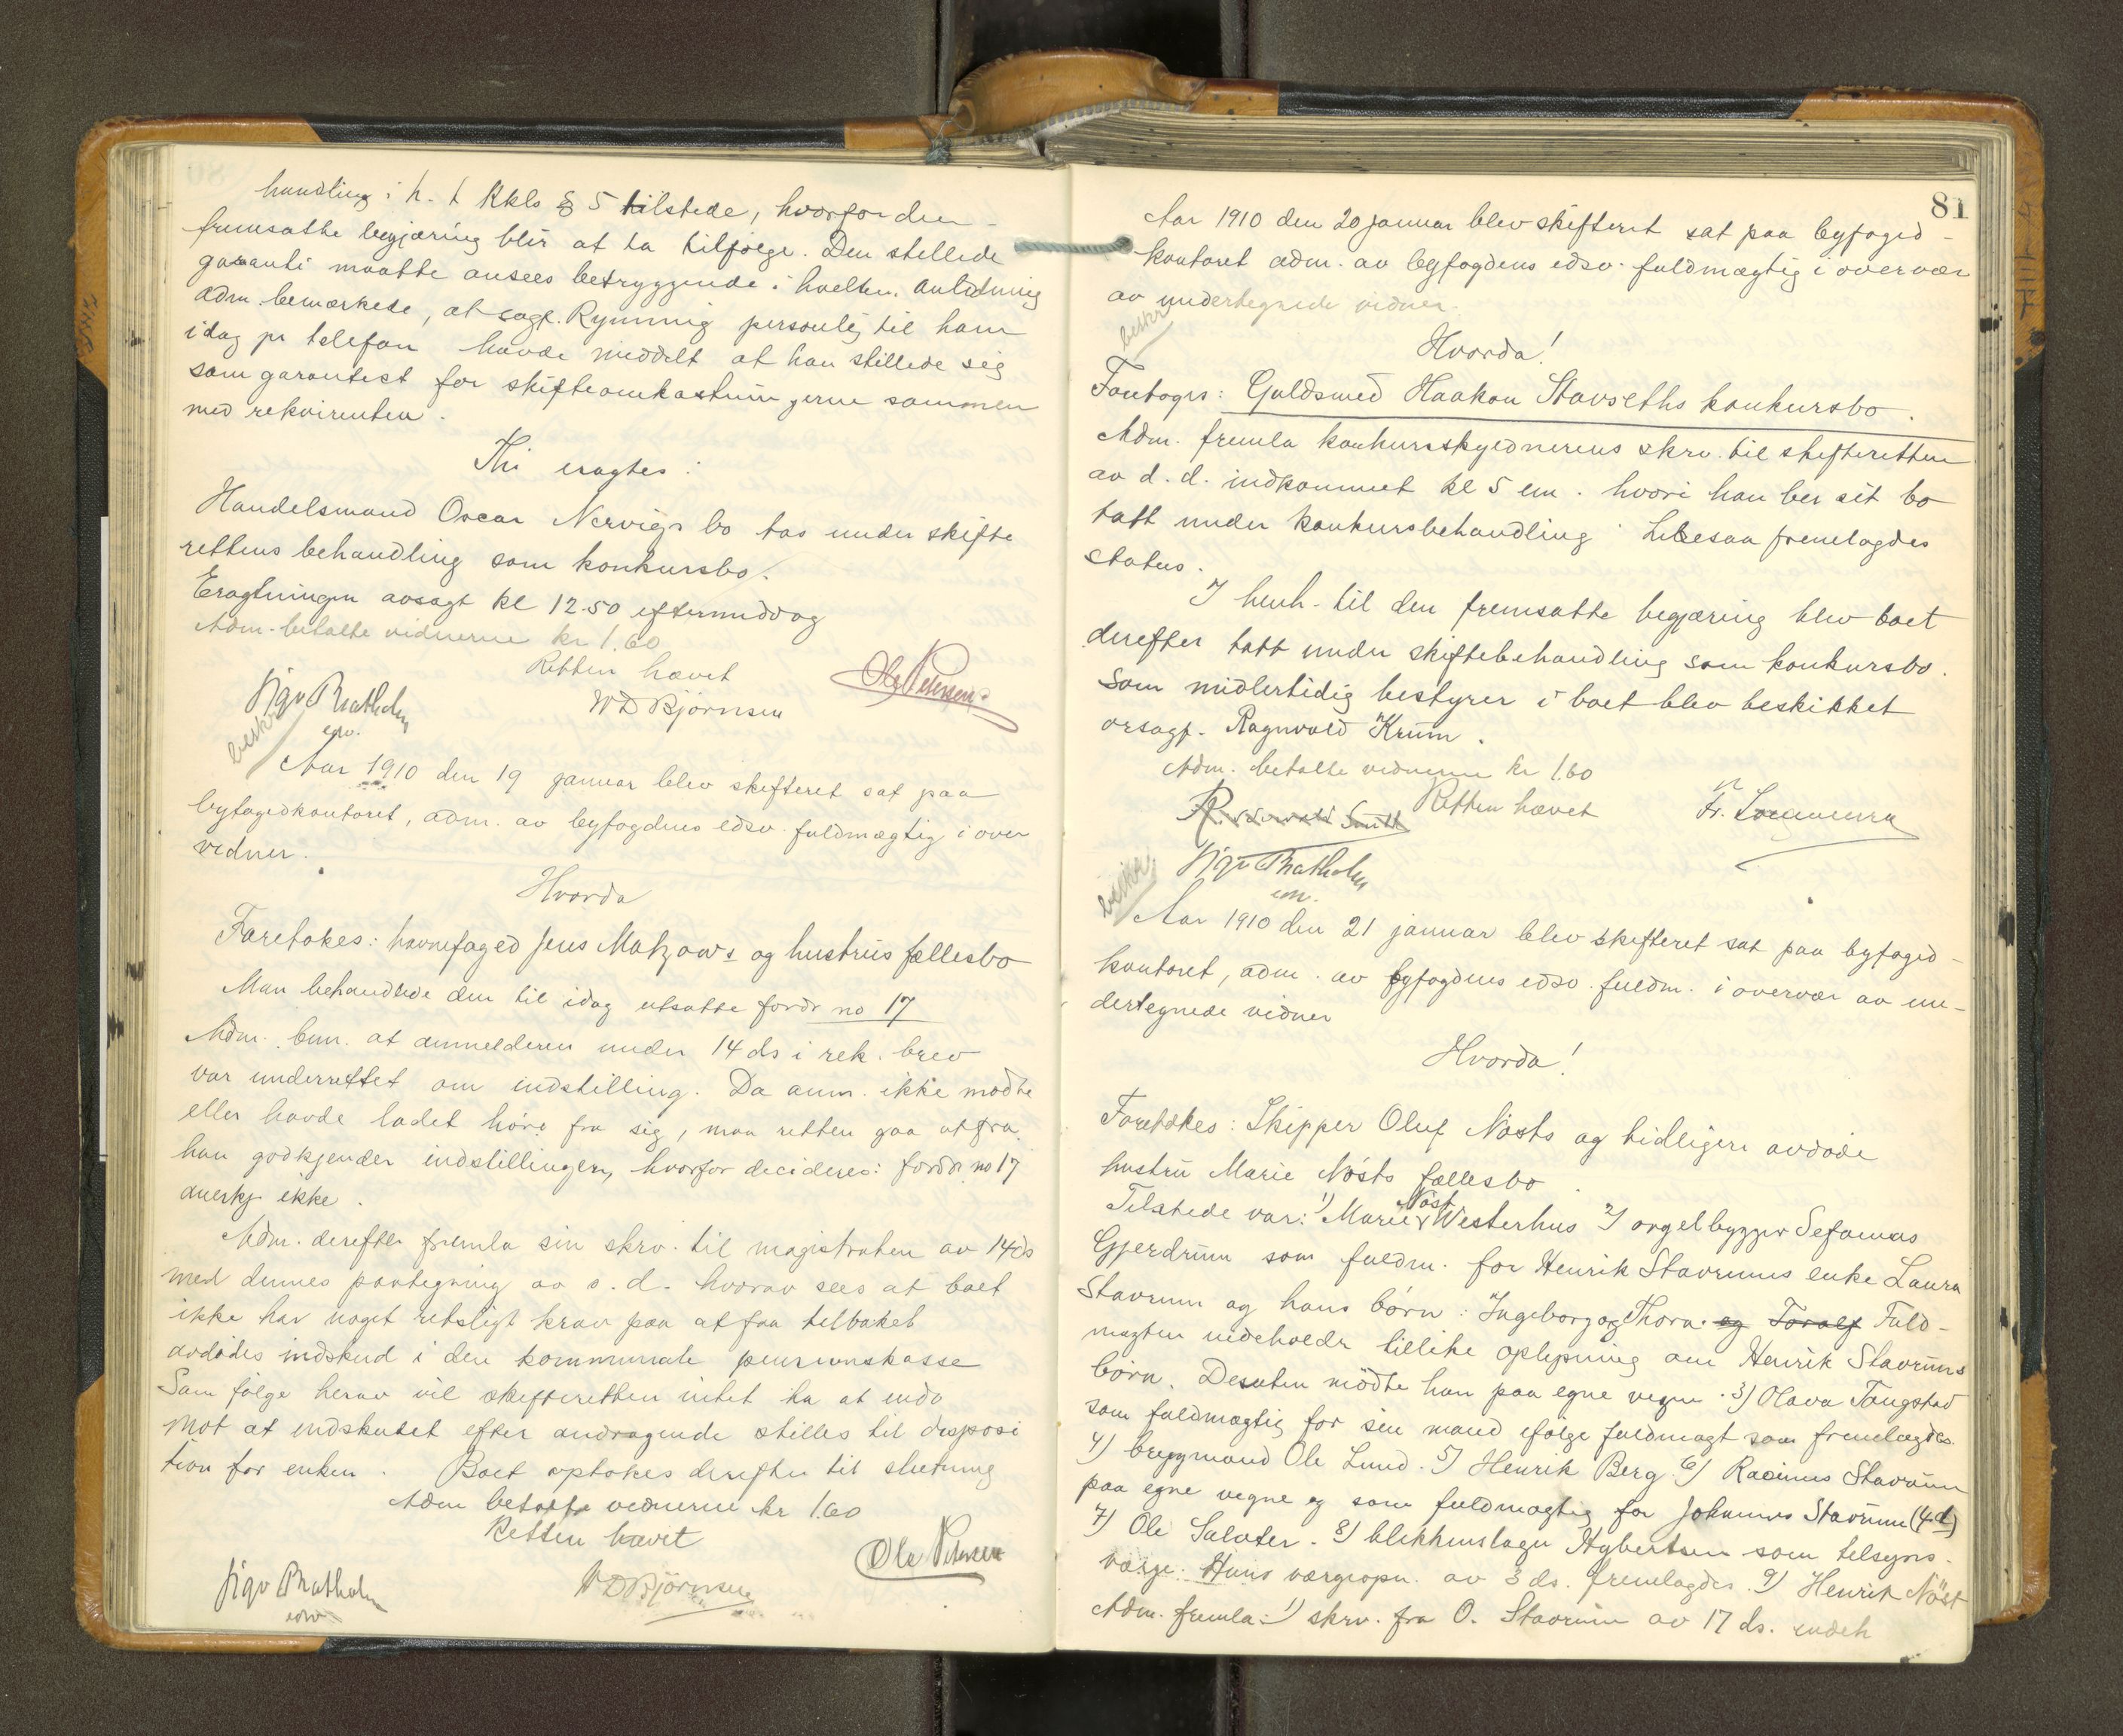 handling i h. t Kkls § 5 tilstede, hvorfor den
fremsatte begjæring blir at ta tilfølge. Den stillede
garanti maatte ansees betryggende i hvelken anledning
adm. bemærkede, at sagf. Rynning personlig til ham
idag pr telefon havde meddelt at han stillede sig
som garantist for skifteomkostningerne sammen
med rekvirenten.
Thi eragtes:
Handelsmand Oscar Nervigs bo tas under skifte
rettens behandling som konkursbo.
Eragtningen avsagt kl 12.50 eftermiddag
Adm. betalte vidnerne kr 1.60
Retten hævet
Ole Petersen
WD Bjørnsen
beskr
Aar 1910 den 19 januar blev skifteret sat paa
byfogedkontoret, adm. av byfogdens edsv. fuldmægtig i over
vidner.
Hvorda
Foretokes: havnefoged Jens Matzows og hustrus fællesbo
Man behandlede den til idag utsatte fordr no 17
Adm. bem. at anmelderen under 14 ds i rek. brev
var underrettet om indstilling. Da anm. ikke mødte
eller havde ladet høre fra sig, maa retten gaa ut fra
han godkjender indstillingen, hvorfor decideres: fordr. no 17
anerkj. ikke.
Adm. derefter fremla sin skrv. til magistraten av 14 ds
med dennes paategning av s. d. hvorav sees at boet
ikke har noget retsligt krav paa at faa tilbaket
avdødes indskud i den kommunale pensionskasse
Som følge herav vil skifteretten intet ha at indv
mot at indskutet efter andragende stilles til disposi
tion for enken. Boet optokes derefter til slutning
Adm betalte vidnerne kr 1.60
Retten hævet
Ole Petersen
WD Bjørnsen
81
Aar 1910 den 20 januar blev skifteret sat paa byfoged-
kontoret adm. av byfogdens edsv. fuldmægtig i overvær
av undertegnede vidner.
beskr
Hvorda!
Foretoges: Guldsmed Haakon Stavseths konkursbo.
Adm. fremla konkursskyldnerens skrv. til skifteretten
av d. d. indkommet kl 5 em. hvori han ber sit bo
tatt under konkursbehandling. Likesaa fremlagdes
status.
I henh. til den fremsatte begjæring blev boet
derefter tatt under skiftebehandling som konkursbo.
Som midlertidig bestyrer i boet blev beskikket
orsagf. Ragnvald Krum.
Adm. betalte vidnerne kr 1.60
Retten hævet
beskr
Aar 1910 den 21 januar blev skifteret sat paa byfoged-
kontoret, adm. av byfogdens edsv. fuldm. i overvær av un-
dertegnede vidner
Hvorda!
Foretokes: Skipper Oluf Nøsts og tidligere avdøde
hustru Marie Nøsts fællesbo.
Tilstede var: 1) Marie Nøst Westerhus 2) orgelbygger Sefanias
Gjerdrum som fuldm. for Henrik Stavrums enke Laura
Stavrum og hans børn: Ingeborg og Thora. og Toralf Fuld-
magten indeholdr tillike oplysning om Henrik Stavrums
børn. Desuten mødte han paa egne vegne. 3) Olava Tangstad
som fuldmægtig for sin mand ifølge fuldmagt som fremlægdes.
4) bryggmand Ole Lund. 5) Henrik Berg. 6) Rasmus Stavrum
paa egne vegne og som fuldmægtig for Johannes Stavrum (4d)
7) Ole Salater. 8) blikkenslager Hybertsen som tilsyns-
værge. Hans værgeopn. av 3 ds. fremlagdes. 9) Henrik Nøst
Adm. fremla: 1) skrv. fra O. Stavrum av 17 ds. indeh